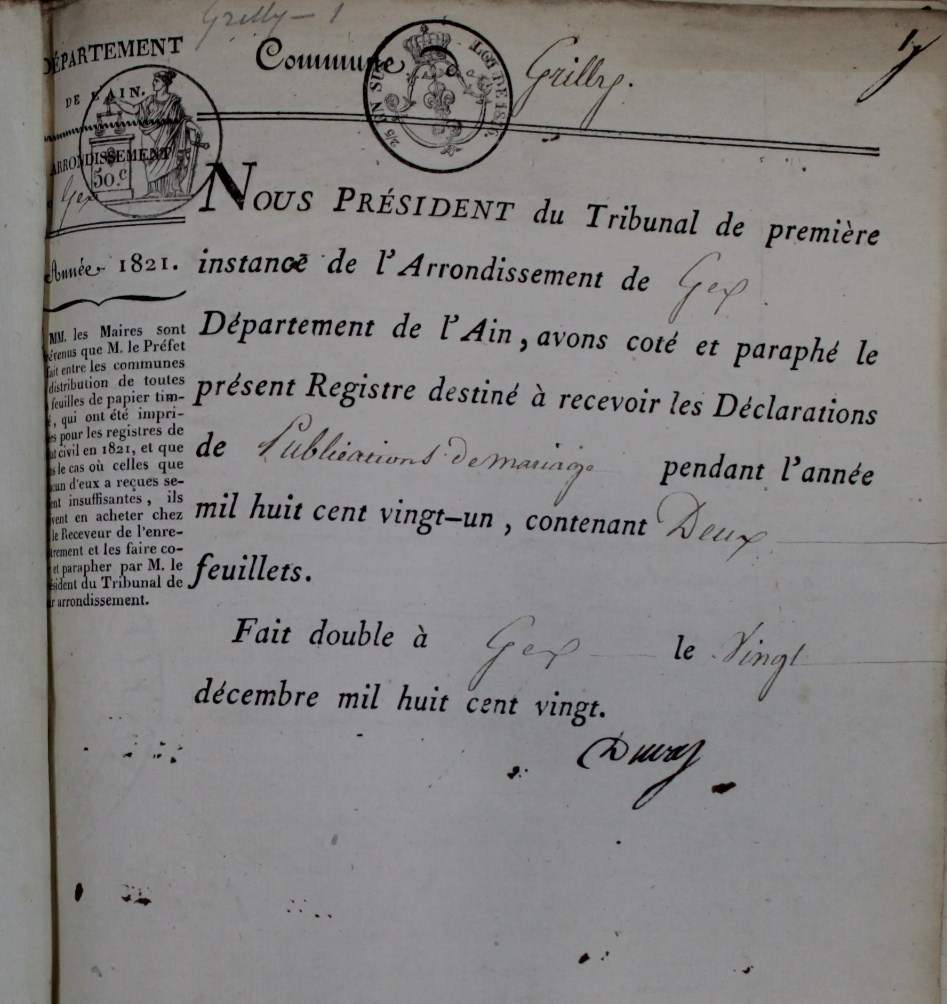 Grilly - 1
1
DÉPARTEMENT
DE L'AIN.
ARRONDISSEMENT
50.c
Gex
Année 1821.
MM. les Maires sont
prévenus que M. le Préfet
fait entre les communes
distribution de toutes
feuilles de papier tim-
, qui ont été impri-
pour les registres de
civil en 1821, et que
le cas où celles que
cun d'eux a reçues se-
ent insuffisantes, ils
vent en acheter chez
le Receveur de l'enre-
trement et les faire co-
et parapher par M. le
sident du Tribunal de
arrondissement.
Commune de Grilly.
EN SUS
LOI DE 1816.
NOUS PRÉSIDENT du Tribunal de première
instance de l'Arrondissement de Gex.
Département de l'Ain, avons coté et paraphé le
présent Registre destiné à recevoir les Déclarations
de Publications de mariage pendant l'année
mil huit cent vingt-un, contenant Deux
feuillets.
Fait double à Gex le Vingt
décembre mil huit cent vingt.